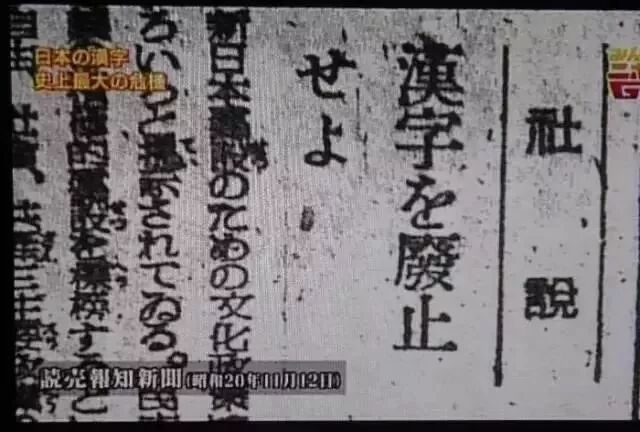 日本の漢字
史上最大の危機
社説
漢字を廢止
せよ
新日本建設のための文化政
ろいろと提示されてゐる。
設を標榜すると
読売報知新聞(昭和20年11月12日)